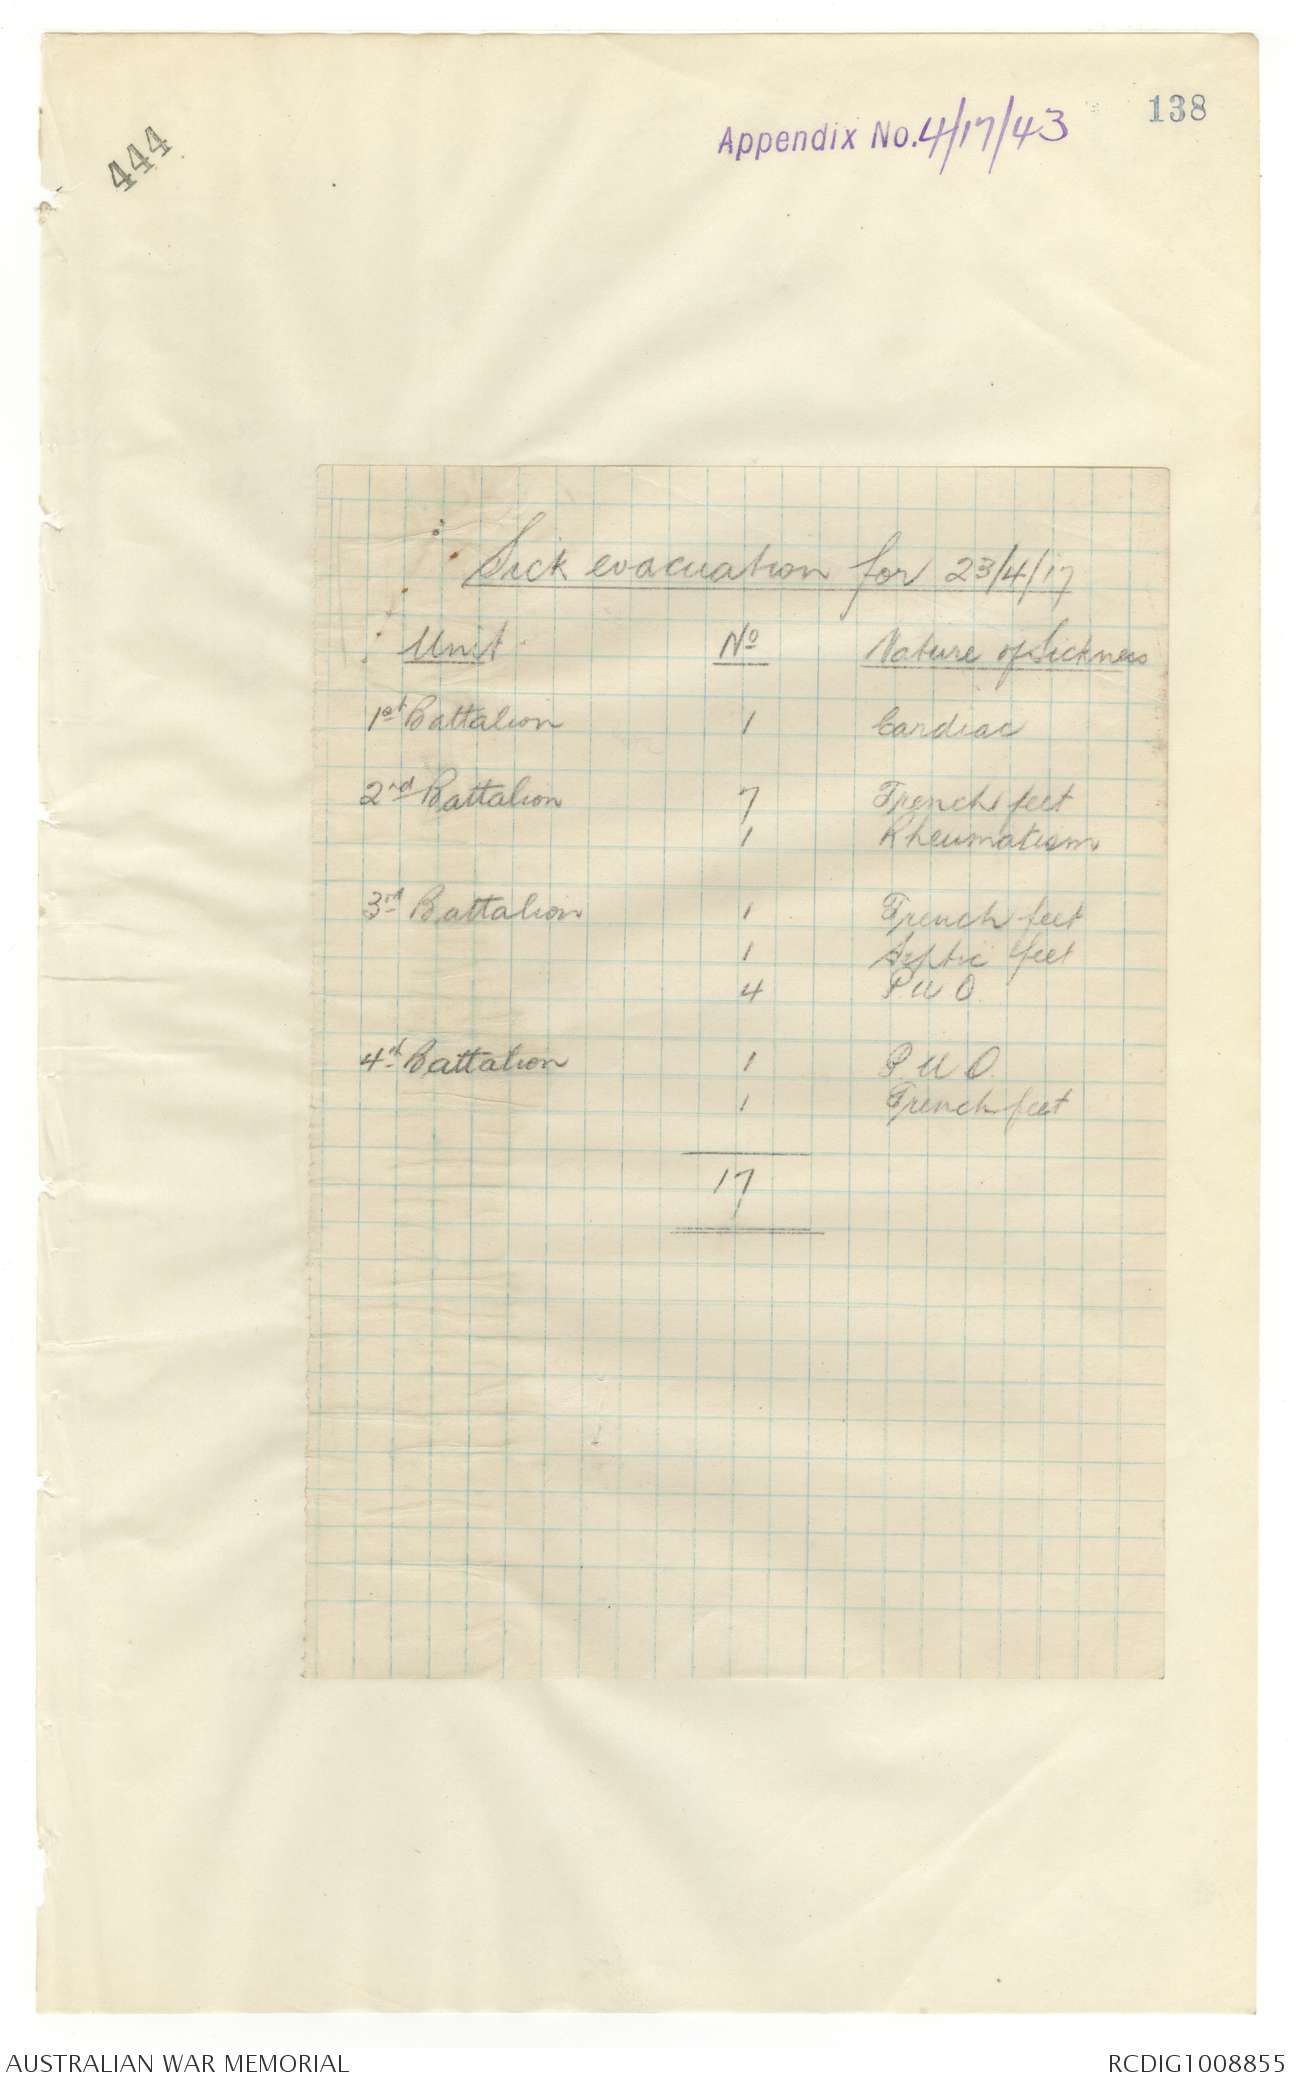 138
Appendix No. 4/17/43
444
Sick evacuation for 23/4/17
Unit No Nature of Sickness
1st Battalion 1 Cardiac
2nd Battalion 7 Trench feet
1 Rheumatism
3rd Battalion 1 Trench feet
1 Septic feet
4 P U O
4th Battalion 1 P. U O.
1 Trench feet
17
AUSTRALIAN WAR MEMORIAL RCDIG1008855